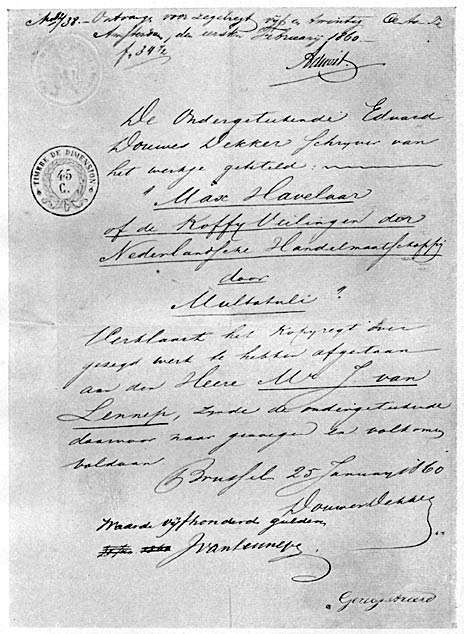 Ontvangen voor zegelregt vijf en twintig
Amsterdam, den eersten Februarij 1860
f 34 7e
TIMBRE DE DIMENSION
45
C.
De Ondergeteekende Eduard
Douwes Dekker Schrijver van
het werkje getiteld
" Max Havelaar
of de Koffy Veilingen der
Nederlandsche Handelmaatschappij
door
Multatuli "
Verklaart het Kopyregt over
gezegd werk te hebben afgestaan
aan den Heere Mr J van
Lennep, zynde de ondergeteekende
daarvoor naar genoegen en volkomen
voldaan
Brussel 25 January 1860
Douwes Dekker
Waarde vijfhonderd gulden
JvanLennep.
Geregistreerd